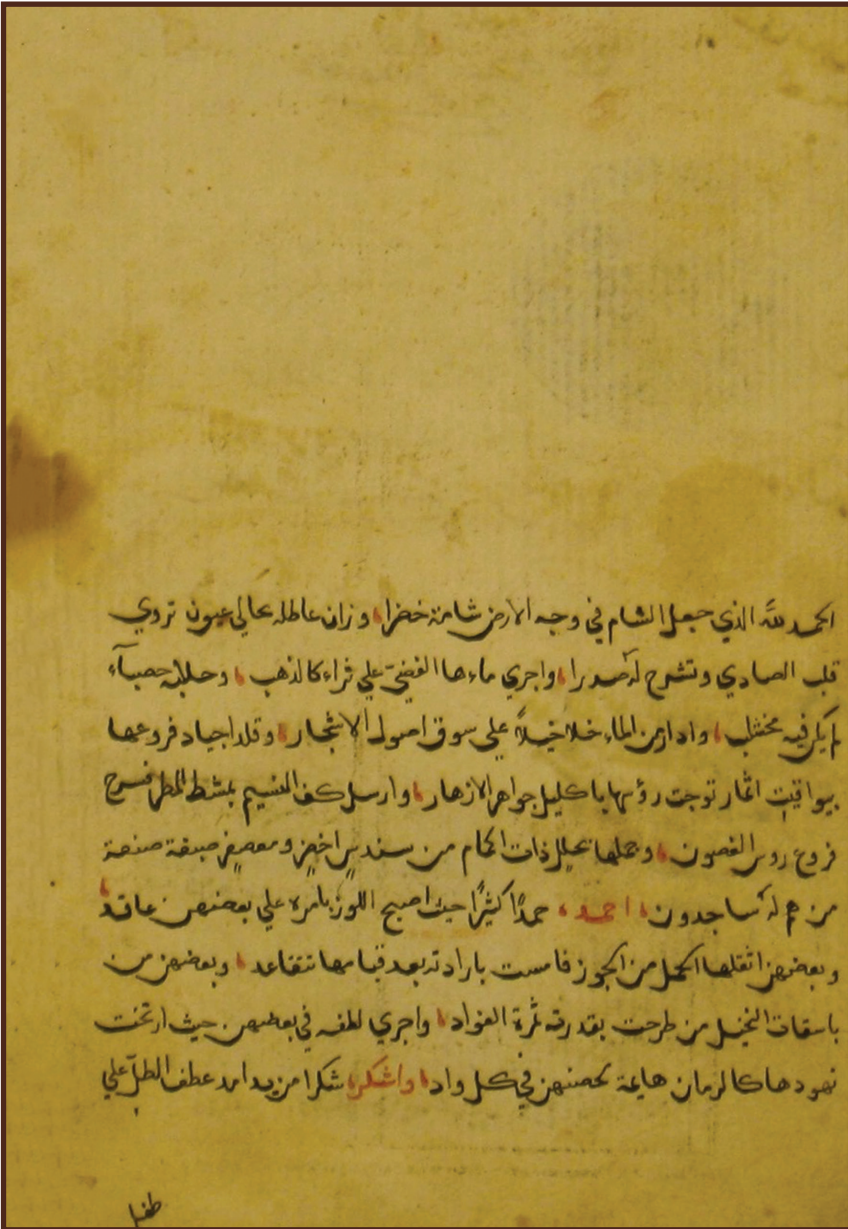 الحمد لله الذي جعل الشام في وجه الارض شامة خضرا، وزان عاطله بحالي عيون تروي
قلب الصادي وتشرح له صدرا، واجري ماءها الفضيّ علي ثراء كالذهب، وحلاله حصباء
لم يكن فيه مخشلب، وادار من الماء خلاخيلاً علي سوق اصول الاشجار، وقلد اجياد فروعها
بيواقيت اثمار توجت رؤسها باكليل جواهر الازهار، وارسل كف النسيم بمشط المطر فسرح
فروع روس الغصون، وجملها بحلل ذات اكمام من سندس اخضر ومعصفر صبغة صنعة
من هم له ساجدون، احمده، حمدًا كثيرًا حيث اصبح اللوز بامره علي بعضهن عاقد،
وبعضهن اثقلها الحمل من الجوز فامست بارادته بعد قيامها تتقاعد، وبعضهن من
باسقات النخيل من طرحت بقدرته ثمرة الفواد، واجري لطفه في بعضهن حيث ارتخت
نهودها كالرمان هايمة بحصنهن في كل واد، واشكره شكرا مزيدا مد عطف الطلّ علي
طفل